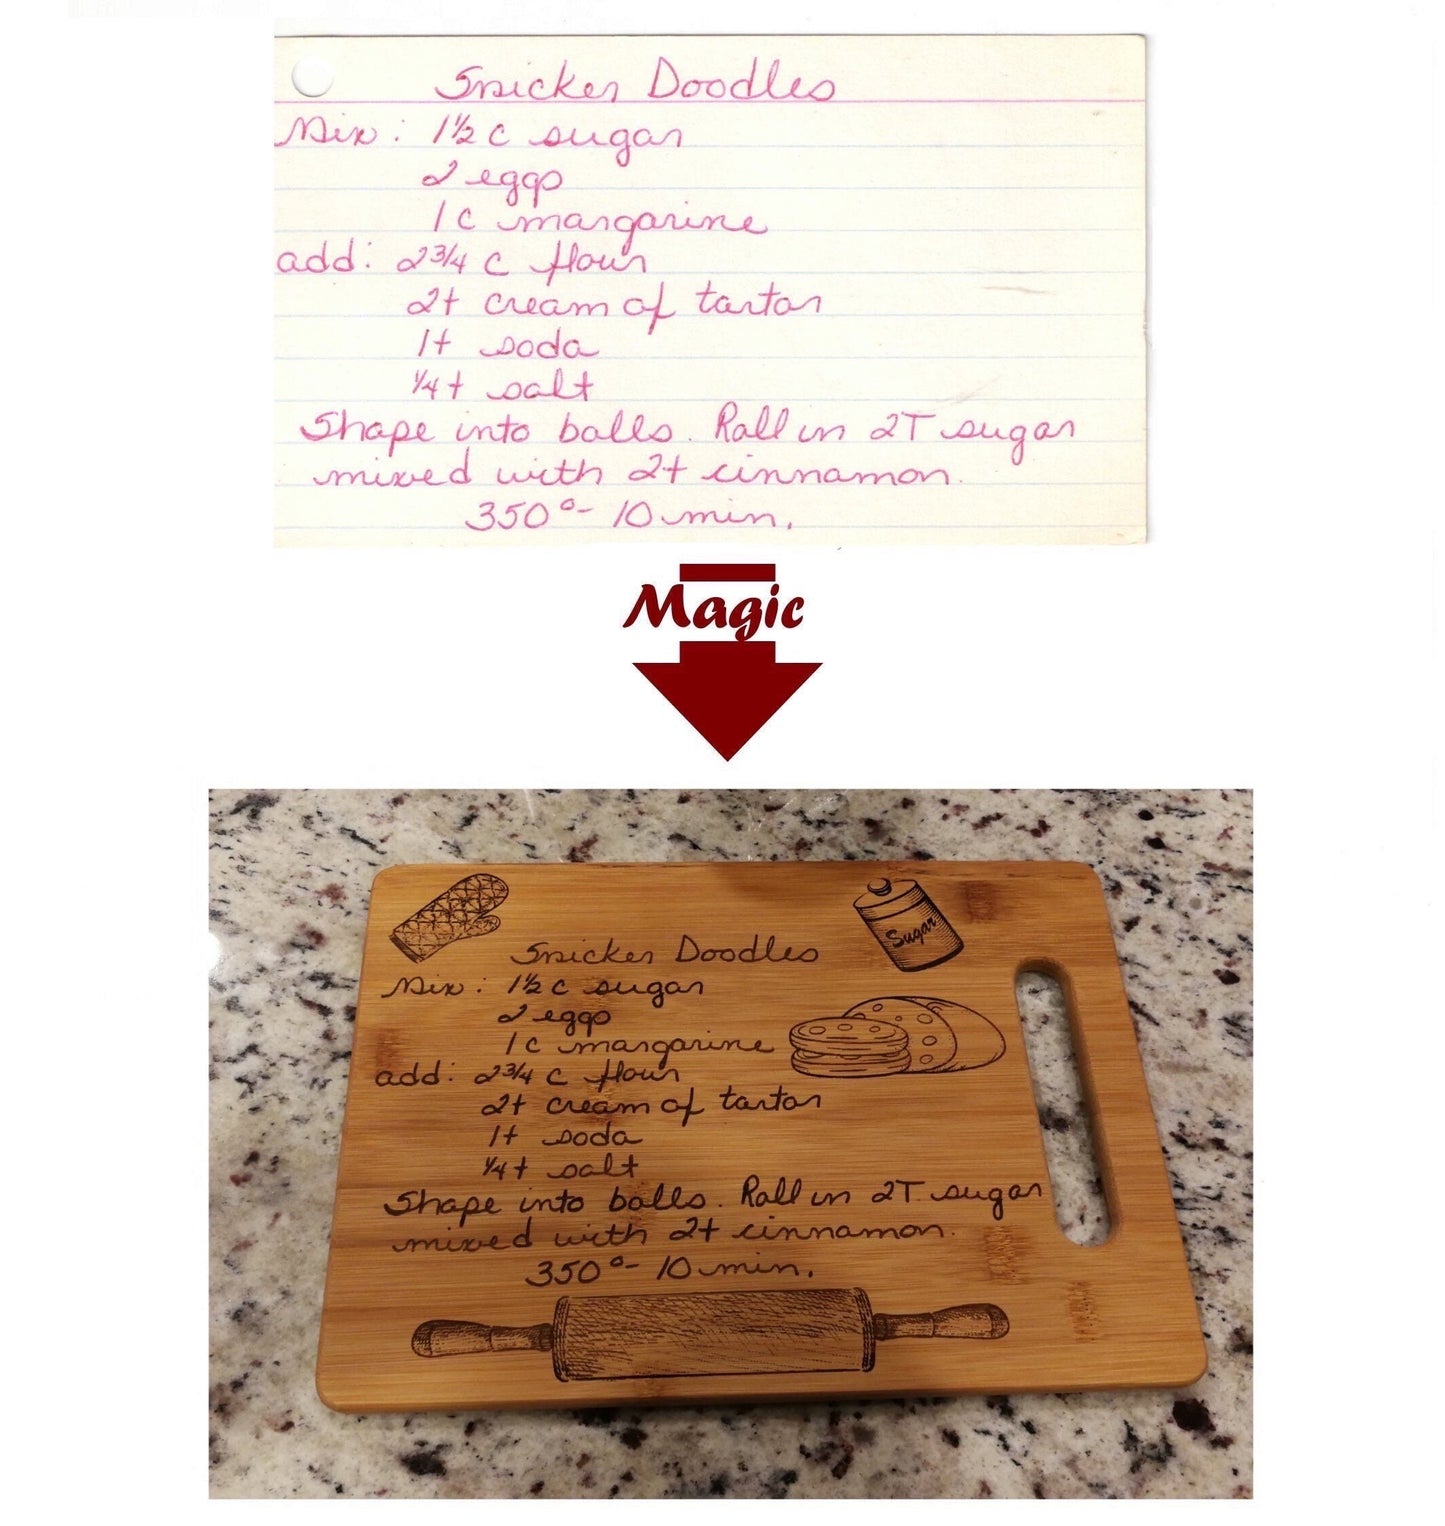 Snicker Doodles
Mix: 1½ c sugar
2 eggs
1 c margarine
add: 2¾ c flour
2t cream of tartar
1t soda
¼t salt
Shape into balls. Roll in 2T sugar
mixed with 2t cinnamon.
350° - 10 min.
Magic
Sugar
Snicker Doodles
Mix: 1½ c sugar
2 eggs
1 c margarine
add: 2¾ c flour
2t cream of tartar
1t soda
¼t salt
Shape into balls. Roll in 2T sugar
mixed with 2t cinnamon.
350° - 10 min.